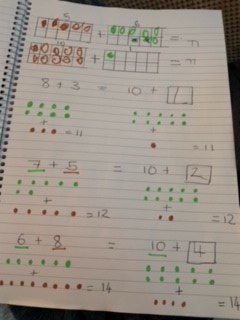 5 6
+ = 11
10
+ = 11
8 + 3 = 10 + 1
+ +
= 11 = 11
7 + 5 = 10 + 2
+ +
= 12 = 12
6 + 8 = 10 + 4
+ +
= 14 = 14